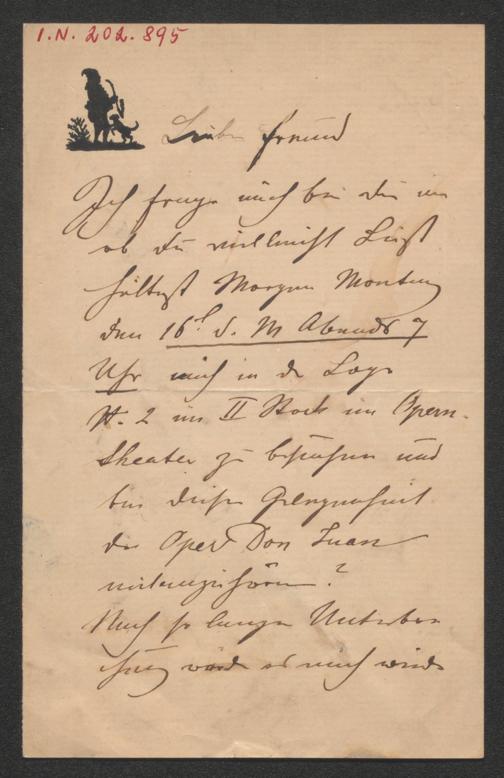 I.N. 202.895
Lieber Freund
Ich frage mich bei dir an
ob du vielleicht Lust
hättest Morgen Montag
den 16t d. M Abends 7
Uhr mich in der Loge
N. 2 im II Stock im Opern-
theater zu besuchen und
bei dieser Gelegenheit
die Oper Don Juan
mitanzuhören?
Nach so langer Unterbre-
chung würde es mich wieder